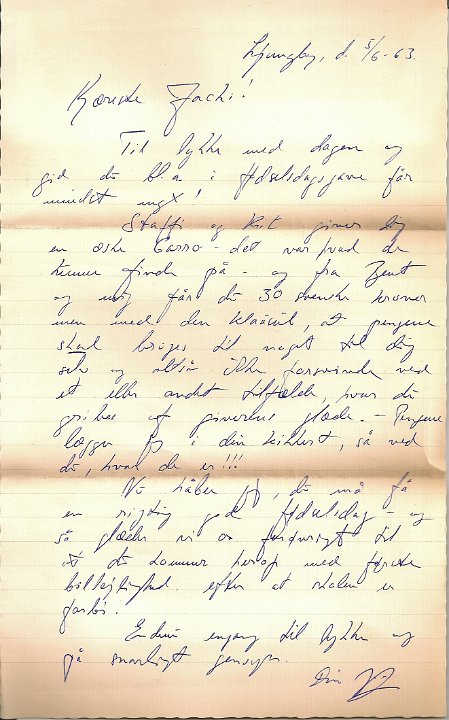 Ljungby, d. 5/6-63.
Kæreste Jachi!
Til lykke med dagen og
gid du bl.a i fødselsdagsgave får
mindst mgx!
Staffi og Kit giver dig
en æske Carro - det var hvad de
kunne finde på - og fra Bent
og mig får du 30 svenske kroner
men med den klausul, at pengene
skal bruges til noget til dig
selv og altså ikke forsvinde ved
et eller andet tilfælde, hvor du
gribes af giverens glæde. - Pengene
lægger jeg i din kikkert, så ved
du, hvor de er!!!
Nu håber jeg, du må få
en rigtig god fødselsdag - og
så glæder vi os forfærdeligt til
at du kommer herop med første
billejlighed. efter at skolen er
forbi.
Endnu engang til lykke og
på snarligt gensyn.
Din